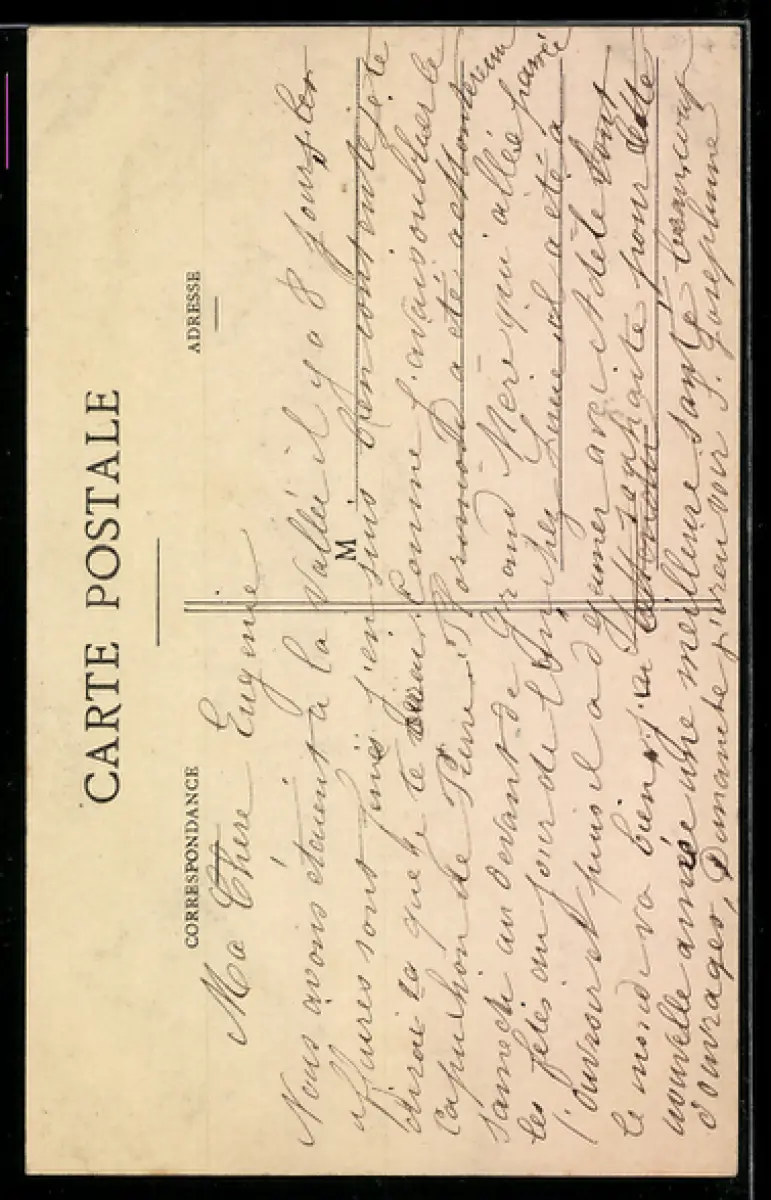 CARTE POSTALE
CORRESPONDANCE
ADRESSE
M
Ma Chere Eugenie
Nous avons étaient a la Vallée il y a 8 jours, les
affaires sont finis j'en suis bien contente je te
dirai sa que je te comme j'avais oublier le
Capuchon de Pierre, a été a
samedi au devant de Grand Mere qui allée passé
les fêtes au jour de l' il a été a
l'ouvroir et puis il a dejeuner avec Adele tout
le monde va bien, j'ai souhaite pour cette
nouvelle année une meilleure santé beaucoup
d'ouvrages, Dimanche au revoir J. Josephine